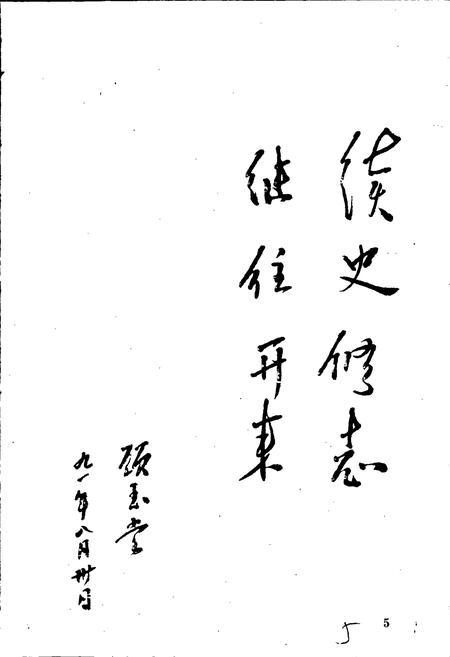 续史修志
继往开来
顾玉堂
九一年八月卅日
5
5